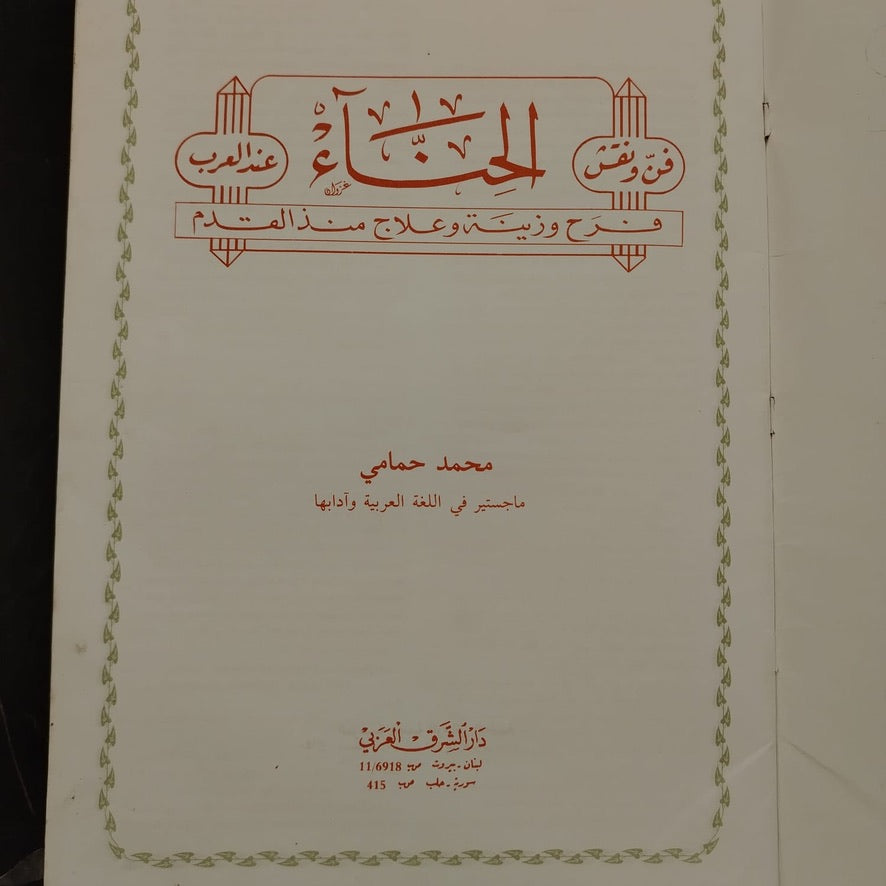 فنّ ونقش الحِنَّآءُ عند العرب
غزوان
فرح وزينة وعلاج منذ القدم
محمد حمامي
ماجستير في اللغة العربية وآدابها
دَارُ الشَّرق العَرَبي
لبنان - بيروت ص ب 11/6918
سورية - حلب ص ب 415